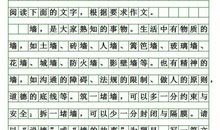 阅读下面的文字，根据要求作文。
墙，是大家熟知的事物。生活中有物质的
墙，如土墙、砖墙、人墙、篱笆墙、玻璃墙、
花墙、城墙、防火墙、影壁墙等。也有精神的
墙，如沟通的障碍、法规的限制、做人的原则，
道德的底线等。筑一堵墙，可以多一份约束与
安全。拆一堵墙，可以少一分封闭与隔膜。